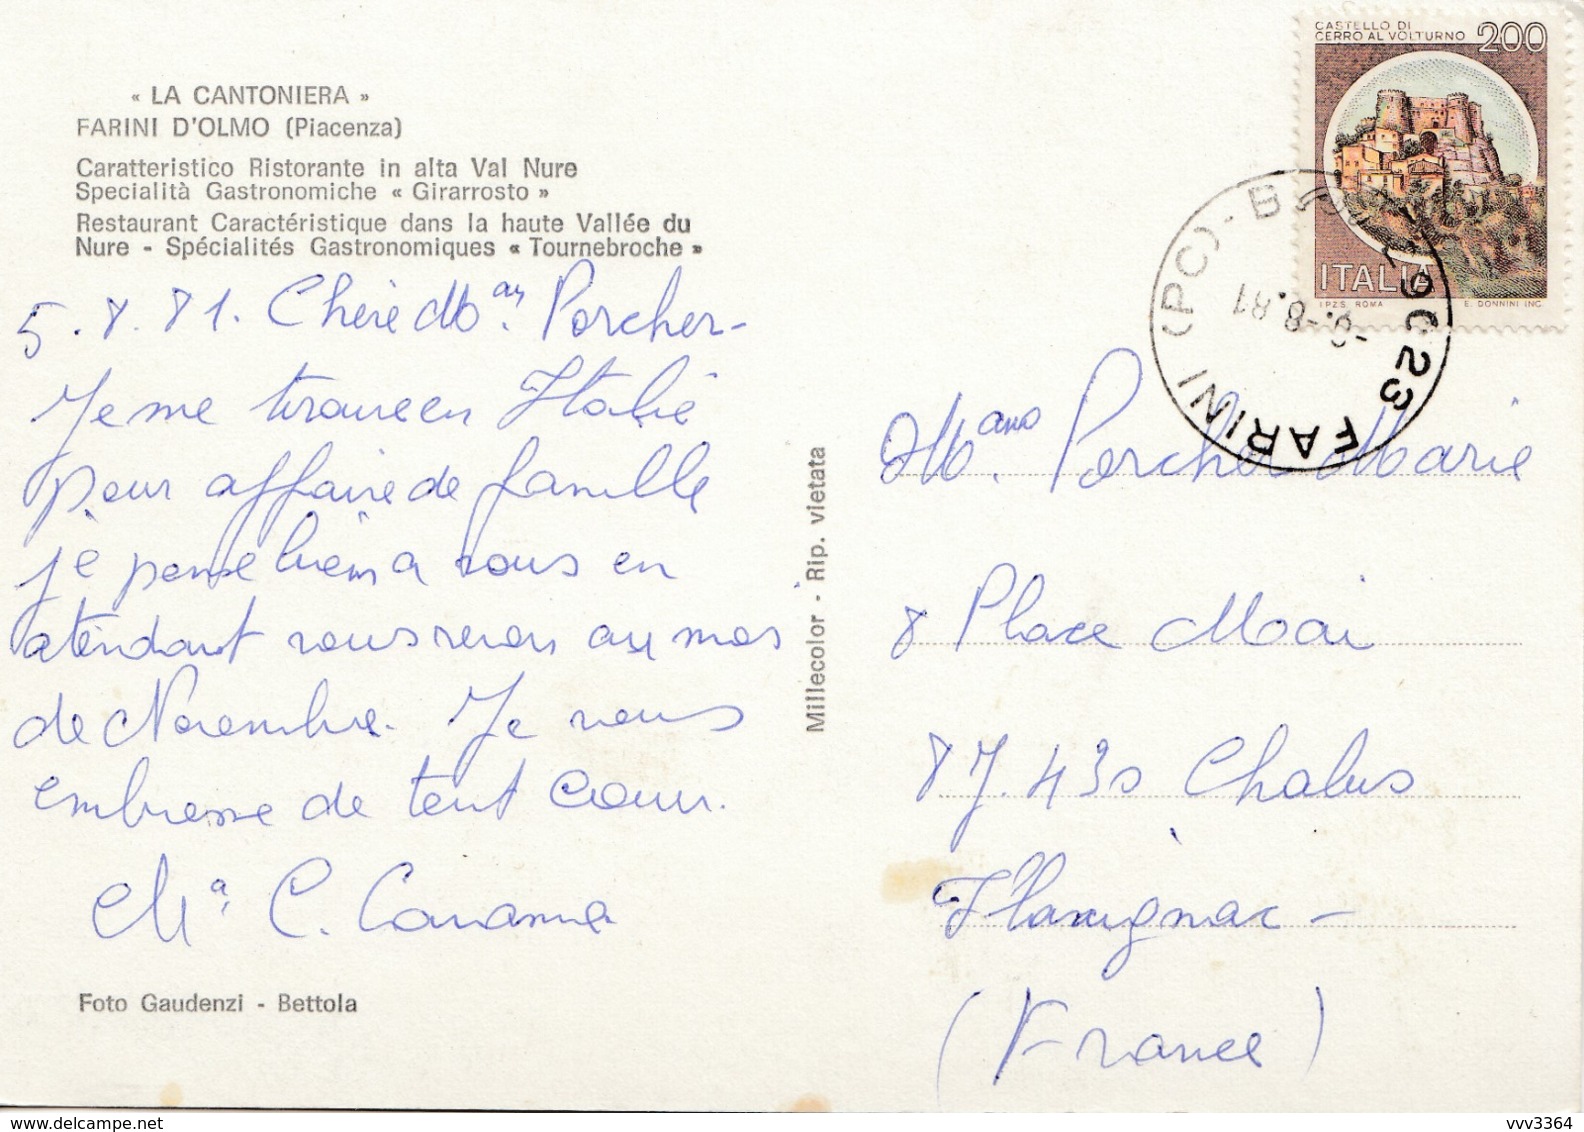 « LA CANTONIERA »
FARINI D'OLMO (Piacenza)
Caratteristico Ristorante in alta Val Nure
Specialità Gastronomiche « Girarrosto »
Restaurant Caractéristique dans la haute Vallée du
Nure - Spécialités Gastronomiques « Tournebroche »
5.8.81. Chère Porcher-
Je me en Italie
pour affaire de famille
je pense bien a vous en
atendant vous revoir au mos
de Novembre. Je vous
embrasse de tout cœur.
C.
Foto Gaudenzi - Bettola
Millecolor - Rip. vietata
CASTELLO DI
CERRO AL VOLTURNO 200
ITALIA
I.P.Z.S. ROMA E. DONNINI INC.
FARINI (PC)
-8.81
Porcher Marie
8 Place
87.430 Chalus
Flavignac -
(France)
vvv3364